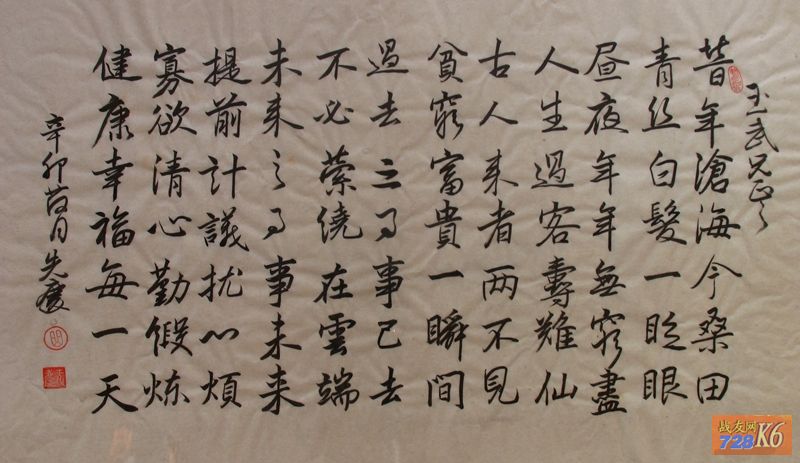 玉武兄正之
昔年滄海今桑田
青丝白髮一眨眼
昼夜年年無穷盡
人生過客壽難仙
古人来者两不見
貧窮富貴一瞬間
過去之事事已去
不必萦繞在雲端
未来之事事未来
提前計議扰心煩
寡欲清心勤假炼
健康幸福每一天
辛卯月先慶
战友网
728 K6